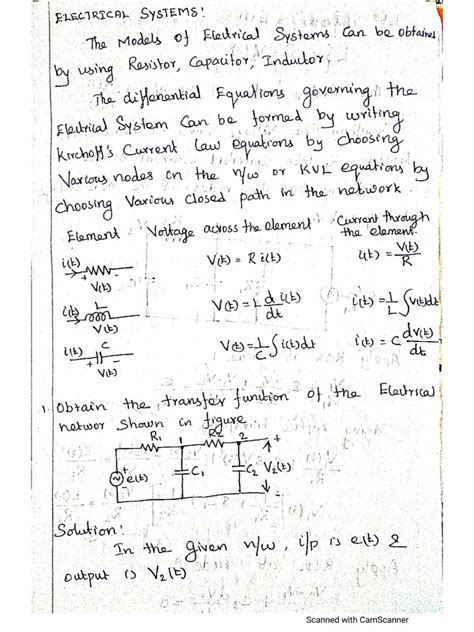 ELECTRICAL SYSTEMS:
The Models of Electrical Systems Can be obtained
by using Resistor, Capacitor, Inductor.
The differential Equations governing the
Electrical System Can be formed by writing
Kirchoff's Current law equations by choosing
Various nodes on the n/w or KVL equations by
choosing Various closed path in the network.
Element Voltage across the element Current through the element.
i(t) V(t) V(t) = R i(t) i(t) = V(t)/R
i(t) L V(t) V(t) = L d i(t)/dt i(t) = 1/L ∫v(t)dt
i(t) C + - V(t) V(t) = 1/C ∫i(t)dt i(t) = C dv(t)/dt
1. Obtain the transfer function of the Electrical
networ shown in figure
R1 1 R2 2 +
+ e(t) - C1 C2 V2(t)
-
Solution:
In the given n/w, i/p is e(t) &
output is V2(t)
Scanned with CamScanner